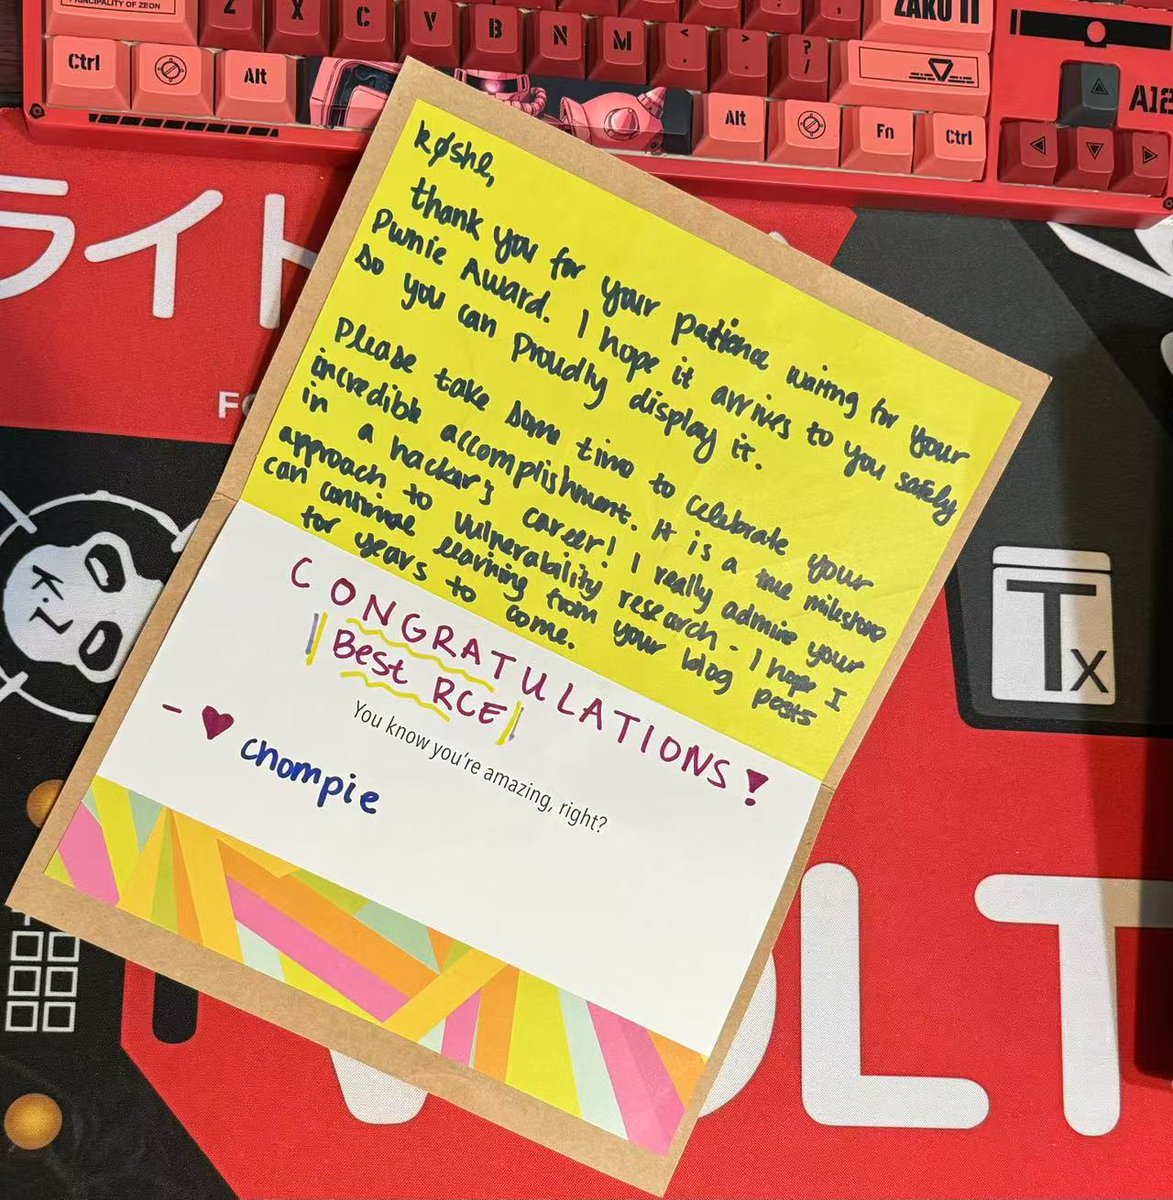 PRINCIPALITY OF ZEON
Z X C V B N M < , > . ? /
ZAKU II
Ctrl Alt Alt Fn Ctrl
A12
ライト
køshl,
thank you for your patience waiting for your
Pwnie Award. I hope it arrives to you safely
so you can proudly display it.
Please take some time to celebrate your
incredible accomplishment. It is a true milestone
in a hacker's career! I really admire your
approach to vulnerability research. I hope I
can continue learning from your blog posts
for years to come.
CONGRATULATIONS!
Best RCE
You know you're amazing, right?
- ♥ chompie
Tx
VOLT